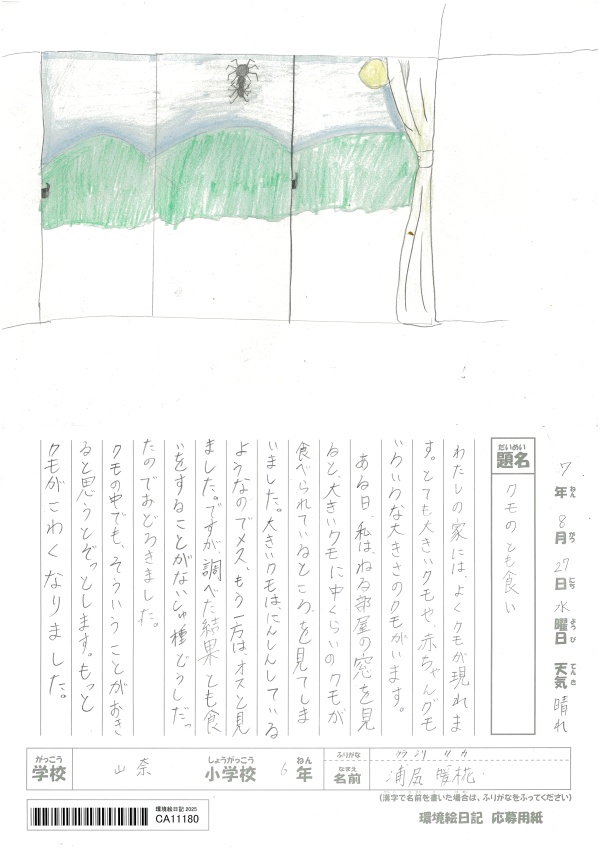 7年 8月 27日 水曜日 天気 晴れ
ねん がつ にち ようび てんき
だいめい
題名
クモのとも食い
わたしの家には、よくクモが現れま
す。とても大きいクモや、赤ちゃんグモ
いろいろな大きさのクモがいます。
ある日、私は、ねる部屋の窓を見
ると、大きいクモに中くらいのクモが
食べられているところ、を見てしま
いました。大きいクモは、にんしんしている
ようなのでメス、もう一方は、オスと見
ました。ですが調べた結果とも食
いをすることがないしゅ種どうしだっ
たのでおどろきました。
クモの中でも、そういうことがおき
ると思うとぞっとします。もっと
クモがこわくなりました。
がっこう
学校
山奈
しょうがっこう
小学校
6
ねん
年
ふりがな
なまえ
名前
浦尻
(漢字で名前を書いた場合は、ふりがなをふってください)
環境絵日記 2025
CA11180
環境絵日記 応募用紙